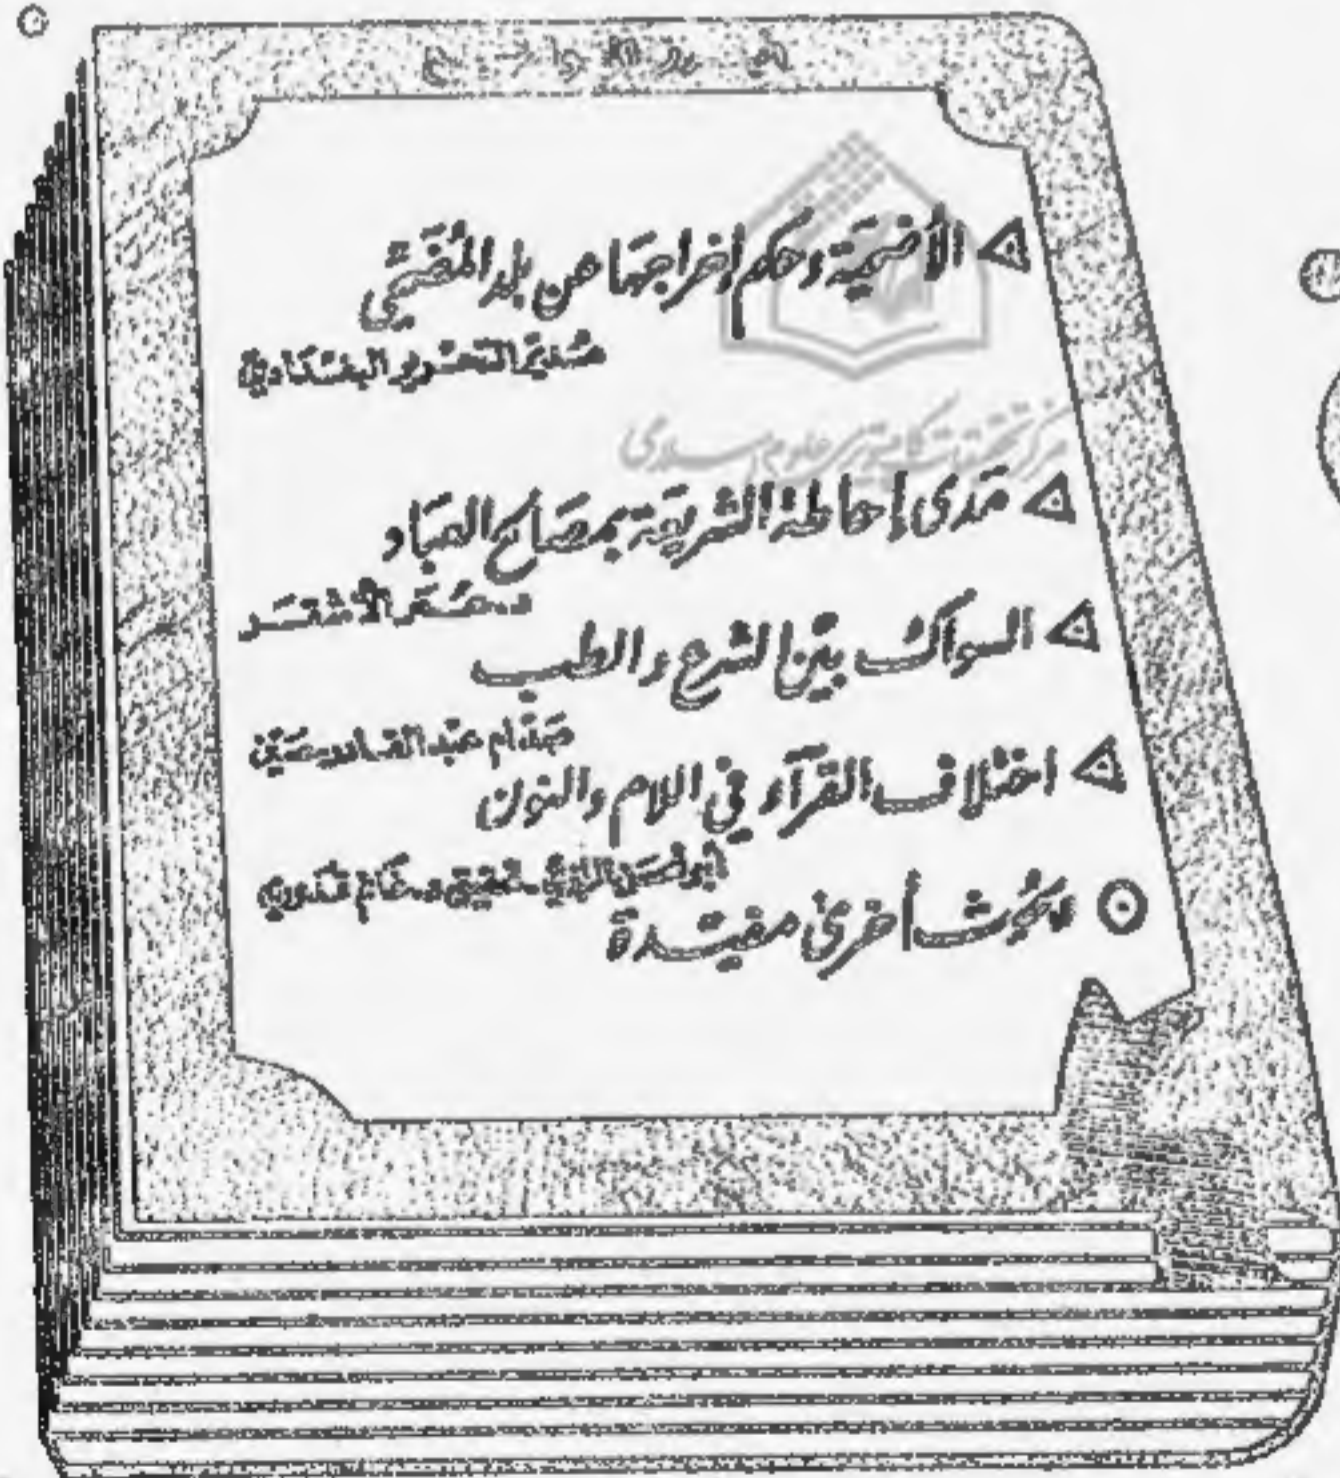 الأضحية وحكم إخراجها عن بلد المُضَحّي
مدير التحرير
مركز تحقيقات كامپيوتري علوم اسلامي
مَدى إحاطة الشريعة بمصَالح العبَاد
د. عُمَر الأشقَر
السواك بيْن الشرع والطب
عبْد القادر
اختلاف القرّآء في اللام والنون
تحقيق د. غانم قدوري
وبحُوث أخرى مفيْدة